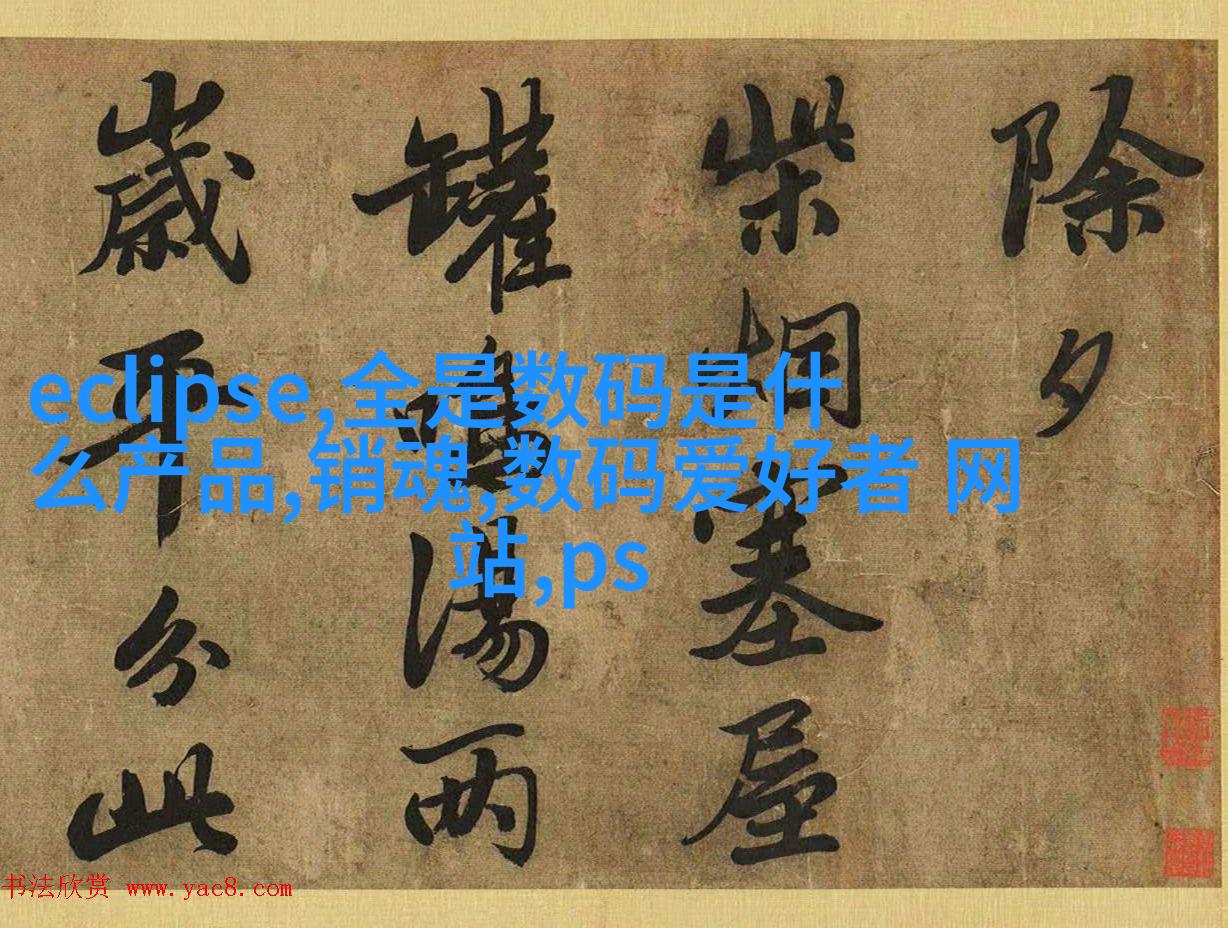 除夕
柴烟塞屋
罐鳴湯兩
歲平分此
eclipse,全是数码是什
么产品,销魂,数码爱好者 网
站,ps
书法欣赏 www.yac8.com